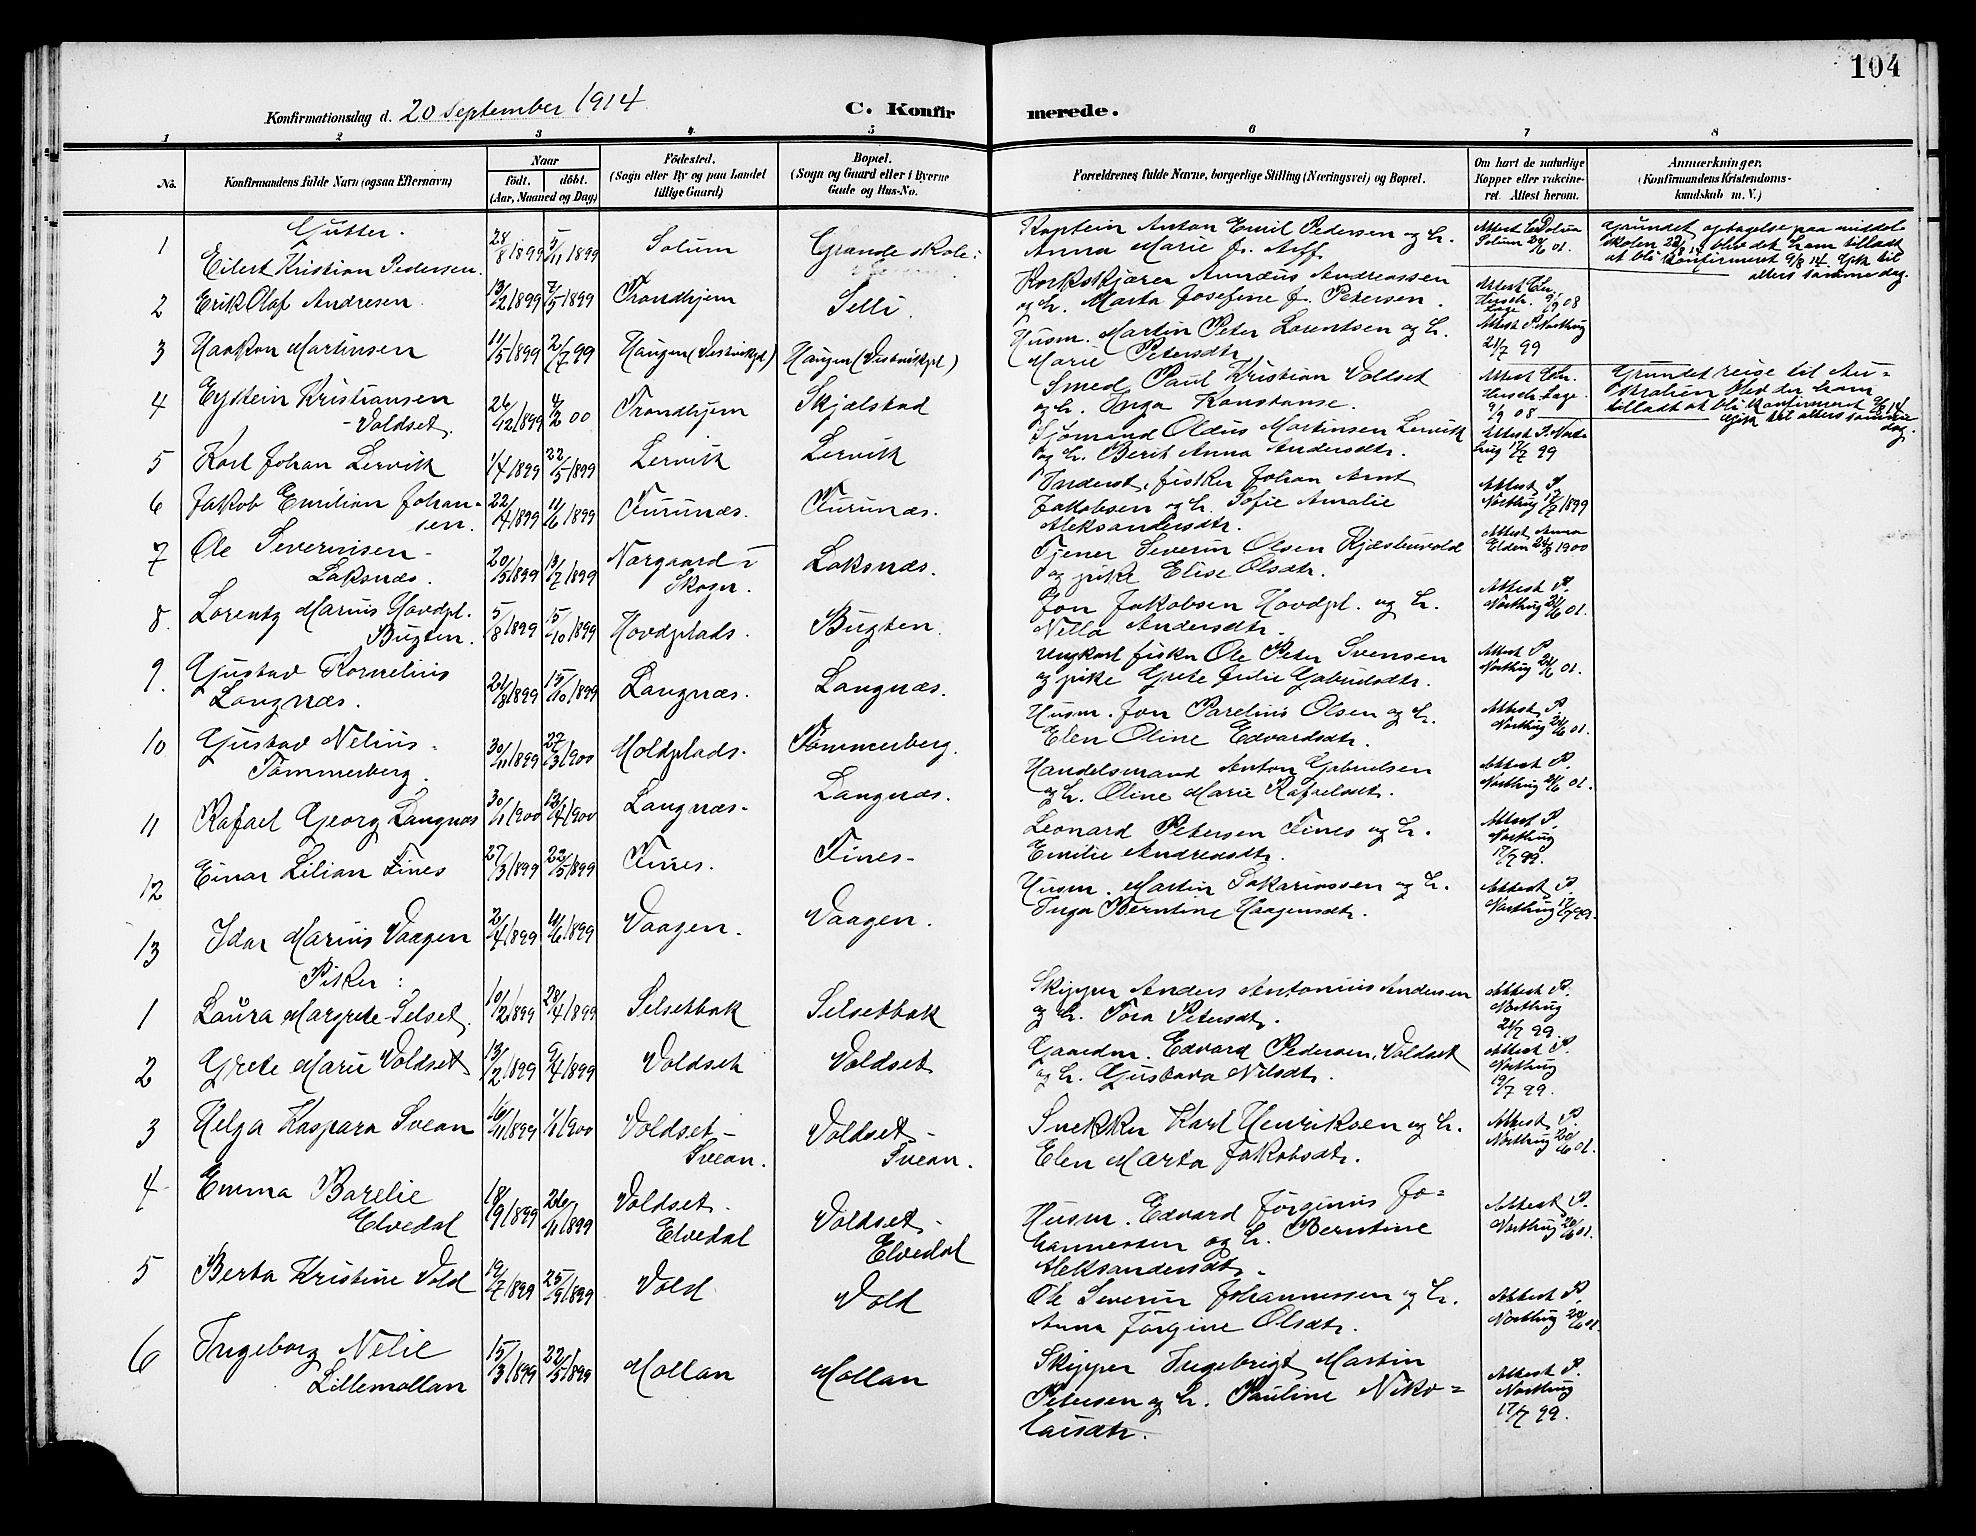 104
Konfirmationsdag d. 20 September 1914
C. Konfirmerede.
1 2 3 4 5 6 7 8
No.
Konfirmandens fulde Navn (ogsaa Efternavn)
Naar
födt. döbt.
(Aar, Maaned og Dag)
Födested.
(Sogn eller By og paa Landet
tillige Gaard)
Bopæl.
(Sogn og Gaard eller i Byerne
Gade og Hus-No.
Forældrenes fulde Navne, borgerlige Stilling (Næringsvei) og Bopæl.
Om havt de naturlige
Kopper eller vaccine-
ret. Attest herom.
Anmærkninger.
(Konfirmandens Kristendoms-
kundskab m. V.)
Gutter.
1 Eilert Kristian Pedersen. 28/8 1899 5/11 1899 Solum Grande skole:
Kaptein Anton Emil Pedersen og h.
Anna Marie f. Arff
Solum 01.
Grundet optagelse paa middels
skolen blev det ham tilladt
at bli konfirmeret 9/8 14. Gik til
alters samme dag.
2 Erik Olaf Andresen. 13/2 1899 7/5 1899 Trondhjem Selli.
Korkskjærer Annæus Andreassen
og h. Marta Josefine f. Petersen.
Attest Chr.
9/9 08
3 Haakon Martinsen 11/5 1899 2/7 99 Haugen (Vestvikpl) Haugen (Vestvikpl)
Husm. Martin Peter Lorentsen og h.
Marie Petersdtr
Attest P. Northug
21/7 99
4 Eystein Kristiansen
-Voldset. 26/12 1899 4/2 00 Trondhjem Skjelstad
Smed Paul Kristian Voldset
og h. Inga Konstanse.
Attest Chr.
9/9 08
Grundet reise til Au=
stralien blev det ham
tilladt at bli konfirmeret 9/8 14
Gik til alters samme
dag.
5 Karl Johan Lervik 1/4 1899 22/5 1899 Lervik Lervik
Sjømand Oldus Martinsen Lervik
og h. Berit Anna Andersdtr.
Attest P. Nort
hug 17/7 99
6 Jakob Emilian Johan-
sen. 22/4 1899 11/6 1899 Furunæs. Furunæs.
Inderst, fisker Johan Arnt
Jakobsen og h. Sofie Amalie
Aleksandersdtr.
Attest P.
Northug 17/7 1899
7 Ole Severinsen -
Laksnæs. 20/5 1899 13/7 1899 Norgaard i
Skogn. Laksnæs.
Tjener Severin Olsen
og pike Elise Olsdtr.
Attest Anna
Elden 1900
8. Lorentz Marius Hovdpl.
Bugten. 5/8 1899 15/10 1899 Hovdplads. Bugten.
Jon Jakobsen Hovdpl. og h.
Nella Andersdtr.
Attest P.
Northug 01.
9. Gustav Kornelius
Langnæs. 21/8 1899 15/10 1899 Langnæs. Langnæs.
Ungkarl fisker Ole Peter Svensen
og pike Grete Julie Gabrielsdtr.
Attest P.
Northug 01.
10 Gustav Nelius -
Tømmerberg. 30/11 1899 27/3 1900 Moldplads. Tømmerberg.
Husm. Jon Parelius Olsen og h.
Elen Oline Edvardsdtr.
Attest P.
Northug 01.
11 Rafael Georg Langnæs 30/1 1900 13/4 1900 Langnæs. Langnæs.
Handelsmand Anton Gabrielsen
og h. Oline Marie Rafaelsdt.
Attest P.
Northug 01.
12 Einar Lilian Fines 27/3 1899 22/5 1899 Fines. Fines-
Leonard Petersen Fines og h.
Emilie Andreasdtr.
Attest P.
Northug
17/7 99.
13 Idar Marius Vaagen 2/4 1899 11/6 1899 Vaagen. Vaagen.
Husm. Martin Sakariassen og h.
Inga Berntine Haagensdtr.
Attest P.
Northug 17/7 99.
Piker:
1 Laura Margrete Selset. 10/2 1899 28/4 1899 Selsetbak Selsetbak
Skipper Anders Antonius Andersen
og h. Tora Petersdt.
Attest P.
Northug
21/7 99.
2 Grete Marie Voldset 13/2 1899 9/4 1899 Voldset Voldset
Gaardm. Edvard Pedersen, Voldset
og h. Gustava Nilsdt.
Attest P.
Northug
19/7 99.
3 Helga Kaspara Svean 16/11 1899 1/1 1900 Voldset-
Svean. Voldset-
Svean.
Snekker Karl Henriksen og h.
Elen Marta Jakobsdtr.
Attest P.
Northug 01.
4 Emma Barelie
Elvedal 18/9 1899 26/11 1899 Voldset-
Elvedal Voldset-
Elvedal
Husm. Edvard Jørginus Jo=
hannessen og h. Berntine
Aleksandersdt.
Attest P.
Northug 01.
5 Berta Kristine Vold 19/7 1899 25/9 1899 Vold Vold
Ole Severin Johannessen og h.
Anna Jørgine Olsdtr.
Attest P.
Northug 01.
6 Ingeborg Nelie
Lillemollan 15/3 1899 22/5 1899 Mollan Mollan
Skipper Ingebrigt Martin
Petersen og h. Pauline Niko=
laisdtr.
Attest P.
Northug
17/7 99.